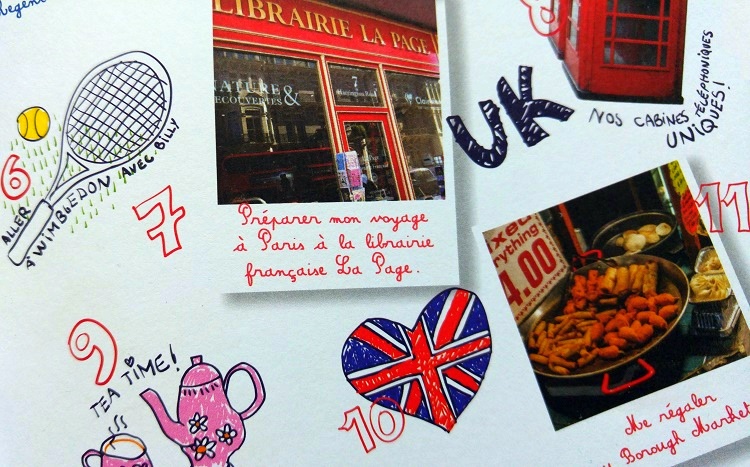 LIBRAIRIE LA PAGE
NATURE &
DECOUVERTES
7
Harrington Road
UK
NOS CABINES
TÉLÉPHONIQUES
UNIQUES!
6
ALLER
À WIMBLEDON AVEC BILLY
7
Préparer mon voyage
à Paris à la librairie
française La Page.
11
4.00
9
TEA TIME!
10
Me régaler
Borough Market